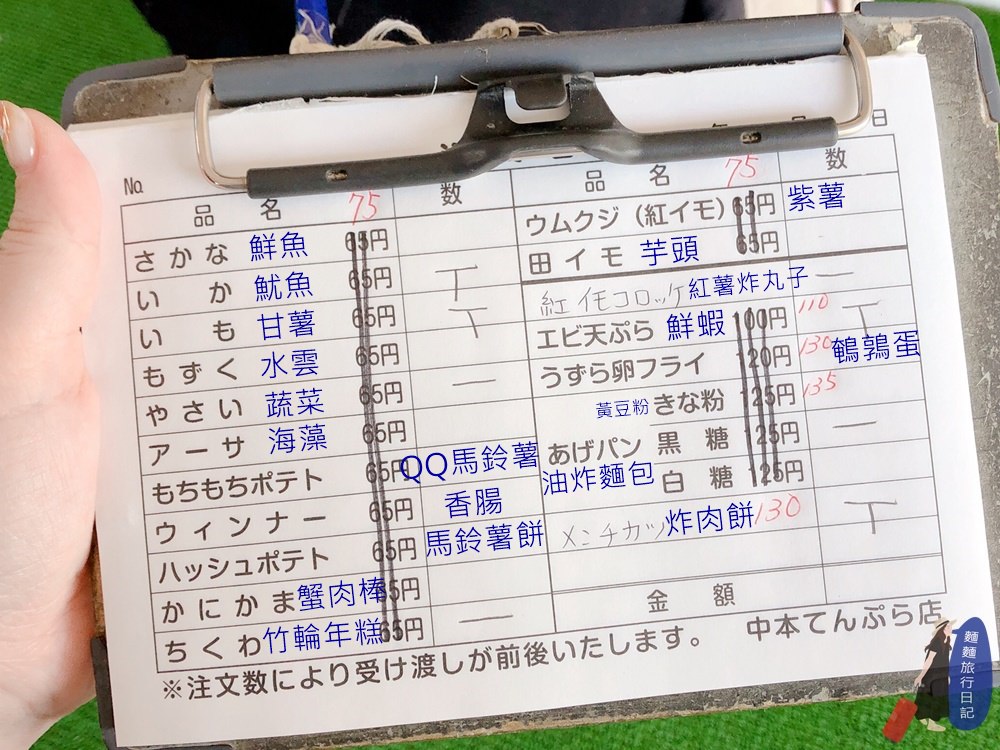 日
No.
品 名 75 数
さかな 鮮魚 65円
いか 魷魚 65円 丅
いも 甘薯 65円 丅
もずく 水雲 65円
やさい 蔬菜 65円 一
アーサ 海藻 65円
もちもちポテト 65円 QQ馬鈴薯
ウィンナー 65円 香腸
ハッシュポテト 65円 馬鈴薯餅
かにかま 蟹肉棒 65円
ちくわ 竹輪年糕 65円 一
品 名 75 数
ウムクジ(紅イモ) 65円 紫薯
田イモ 芋頭 65円
紅イモコロッケ 紅薯炸丸子 一
エビ天ぷら 鮮蝦 100円 110 丅
うずら卵フライ 120円 130 鵪鶉蛋
黃豆粉 きな粉 125円 135
あげパン 黒糖 125円 一
油炸麵包 白糖 125円
メンチカツ 炸肉餅 130 丅
金額
※注文数により受け渡しが前後いたします。 中本てんぷら店
麵麵旅行日記